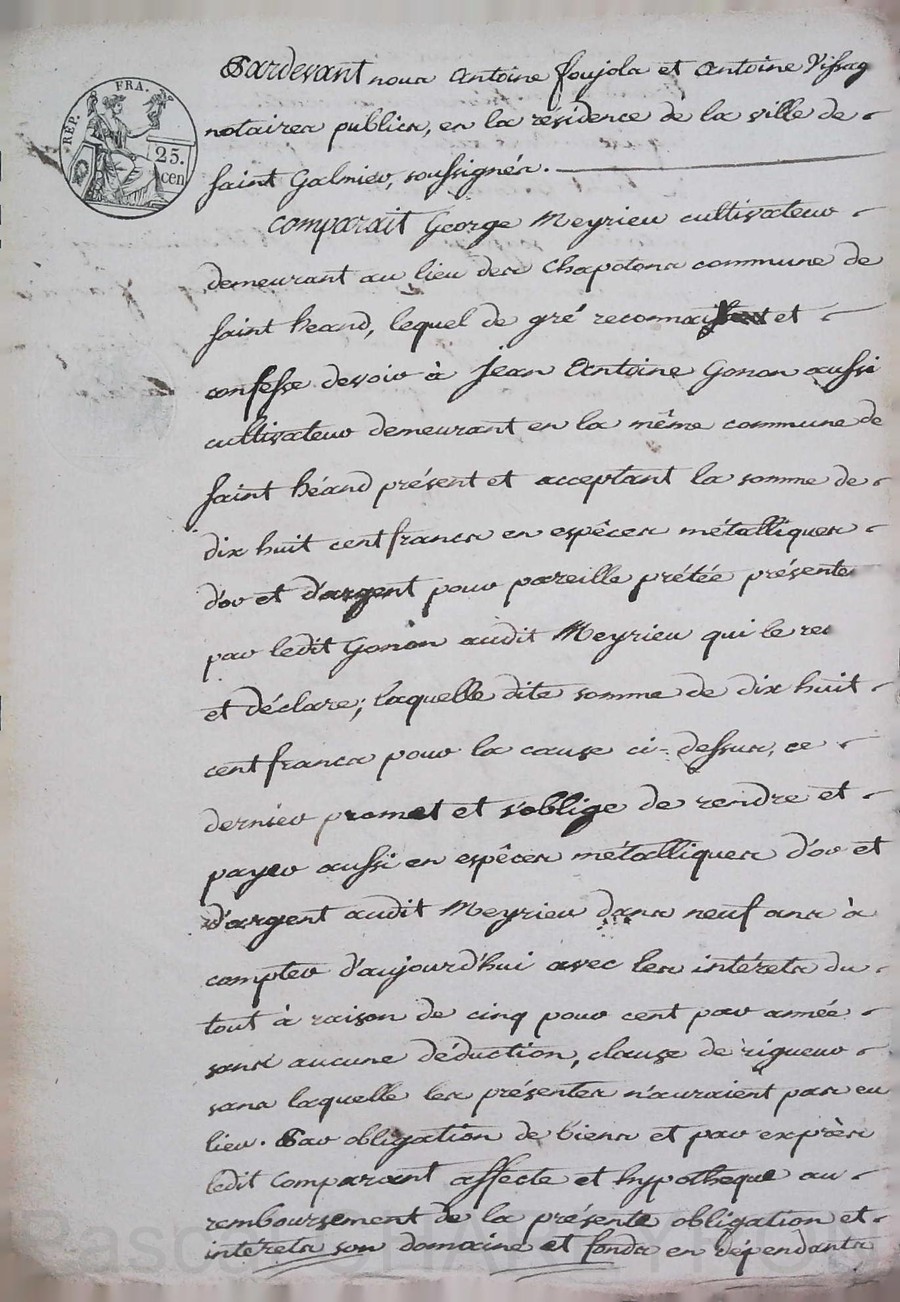 RÉP. FRA.
25.
cen
Pardevant nous Antoine foujols et Antoine Vissag
notaires publics, en la résidence de la ville de
saint Galmier, soussignés.
comparait George Meyrieu cultivateur
demeurant au lieu des Chapotons commune de
saint heand, lequel de gré reconnait et
confesse devoir à Jean Antoine Gonon aussi
cultivateur demeurant en la même commune de
saint héand présent et acceptant la somme de
dix huit cent francs en espêces métalliques
d'or et d'argent pour pareille prétée présente
par ledit Gonon audit Meyrieu qui le rec
et déclare; laquelle dite somme de dix huit
cent francs pour la cause ci-dessus, ce
dernier promet et s'oblige de rendre et
payer aussi en espêces métalliques d'or et
d'argent audit Meyrieu dans neuf ans à
compter d'aujourd'hui avec les intérets du
tout à raison de cinq pour cent par année
sans aucune déduction, clause de rigueur
sans laquelle les présentes n'auraient pas eu
lieu. Par obligation de biens et par exprès
ledit comparant affecte et hypotheque au
remboursement de la présente obligation et
intérets son domaine et fonds en dépendants